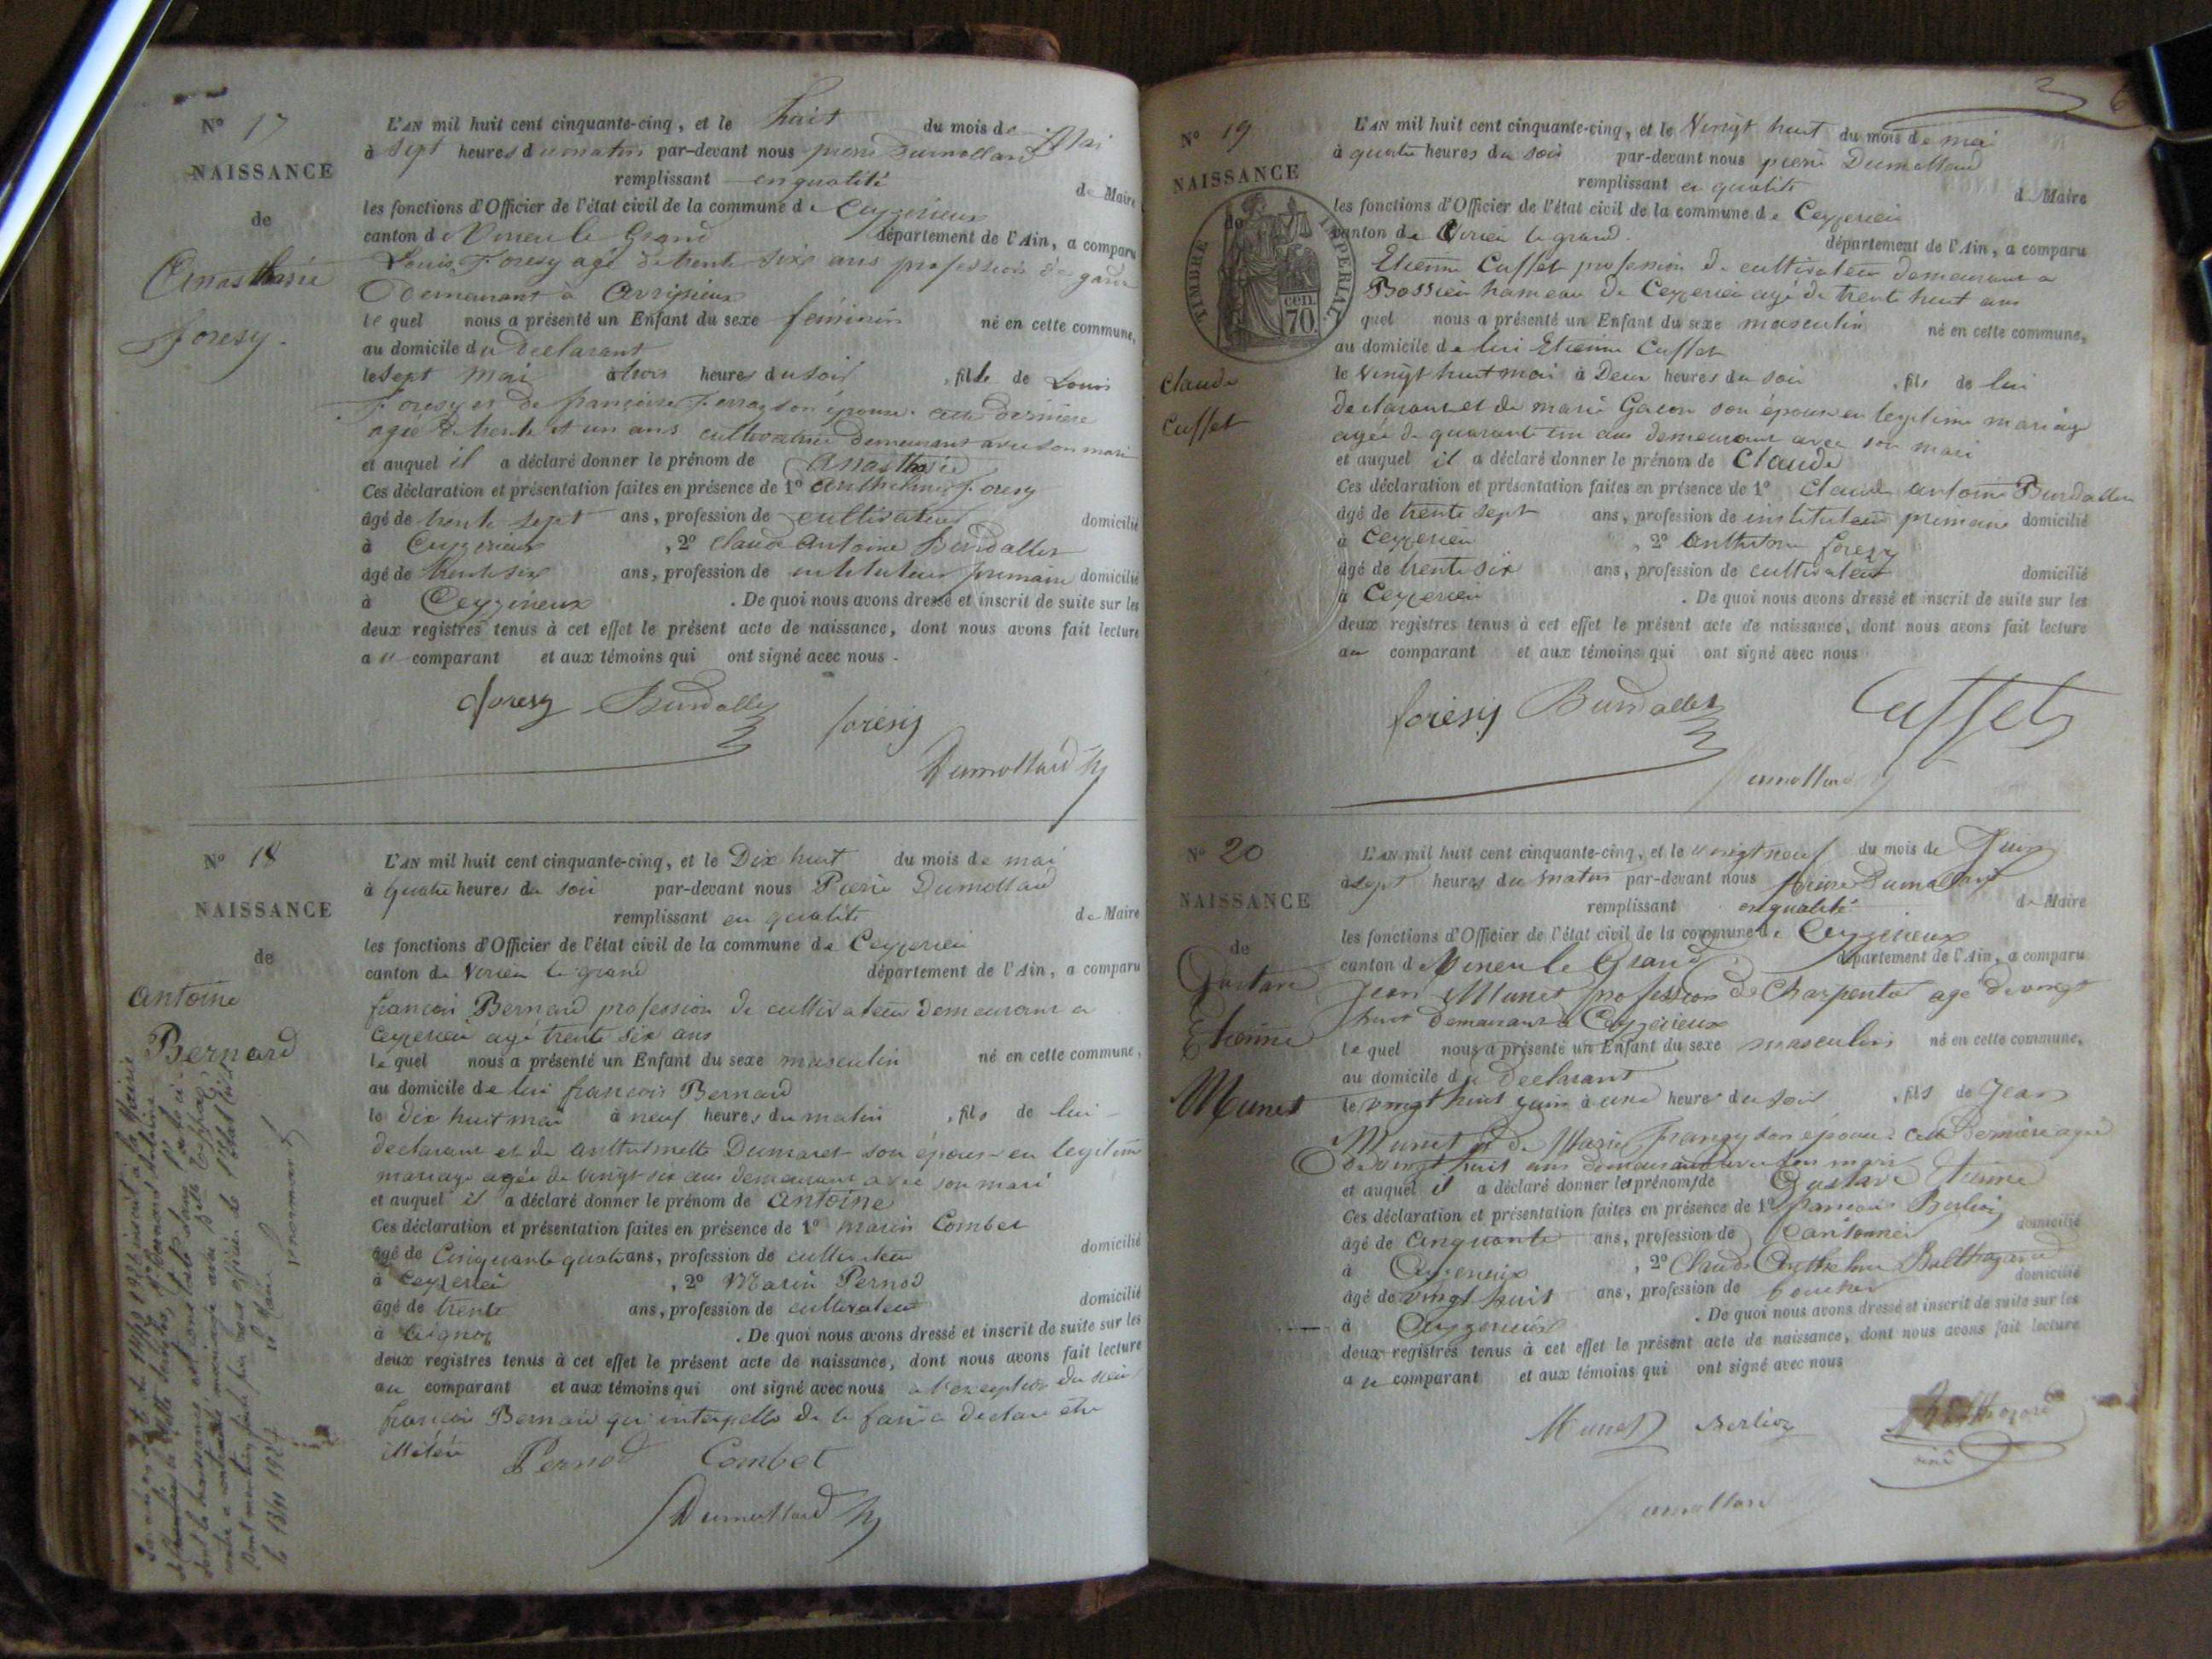 N° 17
NAISSANCE
de
Anasthasie
foresy.
L'AN mil huit cent cinquante-cinq, et le huit du mois de Mai
à sept heures du matin par-devant nous pierre Dumollard
remplissant en qualité de Maire
les fonctions d'Officier de l'état civil de la commune de Ceyzerieux
canton de Virieu le Grand département de l'Ain, a comparu
Louis Foresy agé de trente sixe ans profession de garde
Demeurant à
le quel nous a présenté un Enfant du sexe féminin né en cette commune,
au domicile du Declarant
le sept mai à trois heures du soir , fille de Louis
Foresy et De françoise son épouse. cette dernière
agée de trente et un ans cultivatrice demeurant avec son mari
et auquel il a déclaré donner le prénom de Anasthasie
Ces déclaration et présentation faites en présence de 1° Anthelme foresy
âgé de trente sept ans, profession de cultivateur domicilié
à Ceyzerieux , 2° Claude Antoine Burdallet
âgé de trente six ans, profession de instituteur primaire domicilié
à Ceyzerieux . De quoi nous avons dressé et inscrit de suite sur les
deux registres tenus à cet effet le présent acte de naissance, dont nous avons fait lecture
au comparant et aux témoins qui ont signé avec nous .
foresy Burdallet foresy
Dumollard
N° 18
NAISSANCE
de
Antoine
Bernard
L'AN mil huit cent cinquante-cinq, et le Dix huit du mois de mai
à quatre heures du soir par-devant nous Pierre Dumollard
remplissant en qualité de Maire
les fonctions d'Officier de l'état civil de la commune de Ceyzerieu
canton de Virieu le grand département de l'Ain, a comparu
françois Bernard profession de cultivateur demeurant a
Ceyzerieu agé trente six ans
le quel nous a présenté un Enfant du sexe masculin né en cette commune,
au domicile de lui françois Bernard
le dix huit mai à neuf heures du matin , fils de lui
declarant et de anthelmette Dumarest son épouse en legitime
mariage agée de vingt six ans demeurant avec son mari
et auquel il a déclaré donner le prénom de Antoine
Ces déclaration et présentation faites en présence de 1° marin Combet
âgé de Cinquante quatre ans, profession de cultivateur domicilié
à Ceyzerieu , 2° Marin Pernod
âgé de trente ans, profession de cultivateur domicilié
à . De quoi nous avons dressé et inscrit de suite sur les
deux registres tenus à cet effet le présent acte de naissance, dont nous avons fait lecture
au comparant et aux témoins qui ont signé avec nous a l'exception du sieur
françois Bernard qui interpellé de le faire a declaré etre
illiteré Pernod Combet
Dumollard
le 13/11 1927
N° 19
NAISSANCE
de
TIMBRE IMPERIAL
70 cen.
Claude
Cusset
L'AN mil huit cent cinquante-cinq, et le Vingt huit du mois de mai
à quatre heures du soir par-devant nous pierre Dumollard
remplissant en qualité de Maire
les fonctions d'Officier de l'état civil de la commune de Ceyzerieu
canton de Virieu le grand. département de l'Ain, a comparu
Etienne Cusset profession de cultivateur demeurant a
Bossieu hameau de Ceyzerieu agé de trente huit ans
quel nous a présenté un Enfant du sexe masculin né en cette commune,
au domicile de lui Etienne Cusset
le Vingt huit mai à Deux heures du soir , fils de lui
declarant et de marie Gacon son épouse en legitime mariage
agée de quarante un ans demeurant avec son mari
et auquel il a déclaré donner le prénom de Claude
Ces déclaration et présentation faites en présence de 1° Claude antoine Burdallet
âgé de trente sept ans, profession de instituteur primaire domicilié
à Ceyzerieu , 2° Anthelme foresy
âgé de trente six ans, profession de cultivateur domicilié
à Ceyzerieu . De quoi nous avons dressé et inscrit de suite sur les
deux registres tenus à cet effet le présent acte de naissance, dont nous avons fait lecture
au comparant et aux témoins qui ont signé avec nous
foresy Burdallet Cusset
Dumollard
N° 20
NAISSANCE
de
Gustave
Etienne
Munet
L'AN mil huit cent cinquante-cinq, et le vingt neuf du mois de Juin
à sept heures du matin par-devant nous pierre Dumollard
remplissant en qualité de Maire
les fonctions d'Officier de l'état civil de la commune de Ceyzerieux
canton de Virieu le Grand département de l'Ain, a comparu
Jean Munet profession de Charpentier agé de vingt
huit demeurant à Ceyzerieux
le quel nous a présenté un Enfant du sexe masculin né en cette commune,
au domicile du Declarant
le vingt huit juin à une heure du soir , fils de Jean
Munet et de Marie françy son épouse. cette Dernière agée
de vingt huit ans demeurant avec son mari
et auquel il a déclaré donner les prénoms de Gustave Etienne
Ces déclaration et présentation faites en présence de 1° françois Berlioz
âgé de Cinquante ans, profession de Cantonnier domicilié
à Ceyzerieux , 2° Claude Anthelme Balthazard
âgé de vingt huit ans, profession de boucher domicilié
à Ceyzerieux . De quoi nous avons dressé et inscrit de suite sur les
deux registres tenus à cet effet le présent acte de naissance, dont nous avons fait lecture
au comparant et aux témoins qui ont signé avec nous
Munet Berlioz Balthazard
Dumollard